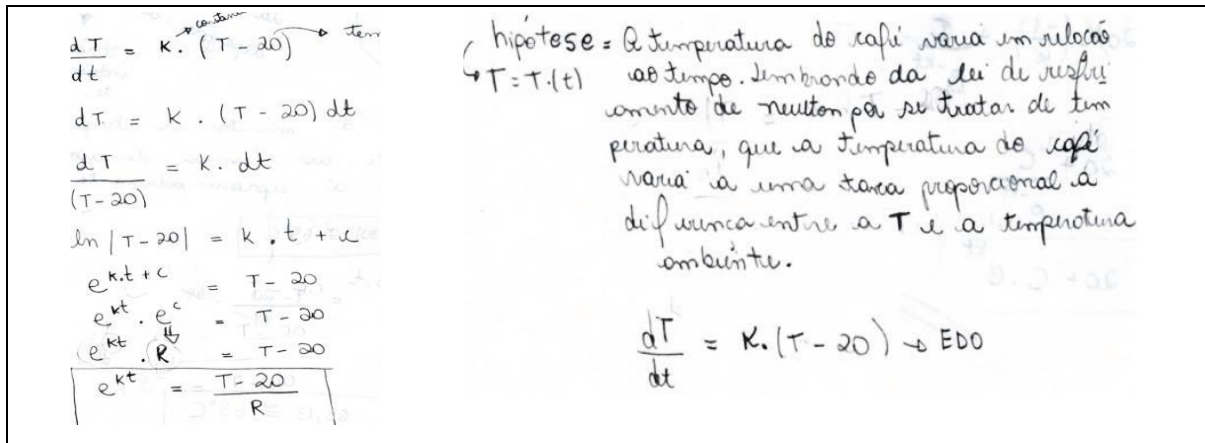 constan
dT/dt = K. (T - 20) → tem
dT = K . (T - 20) dt
dT/(T-20) = K. dt
ln |T-20| = K . t + c
e^{K.t + c} = T - 20
e^{kt} . e^{c} = T - 20
e^{kt} . R = T - 20
e^{kt} = T - 20/R
hipótese = A temperatura do café varia em relacão
T = T.(t) ao tempo. Lembrando da lei de resfri
amento de newton por se tratar de tem
peratura, que a temperatura do café
varia a uma taxa proporcional a
diferenca entre a T e a temperatura
ambiente.
dT/dt = K. (T - 20) → EDO